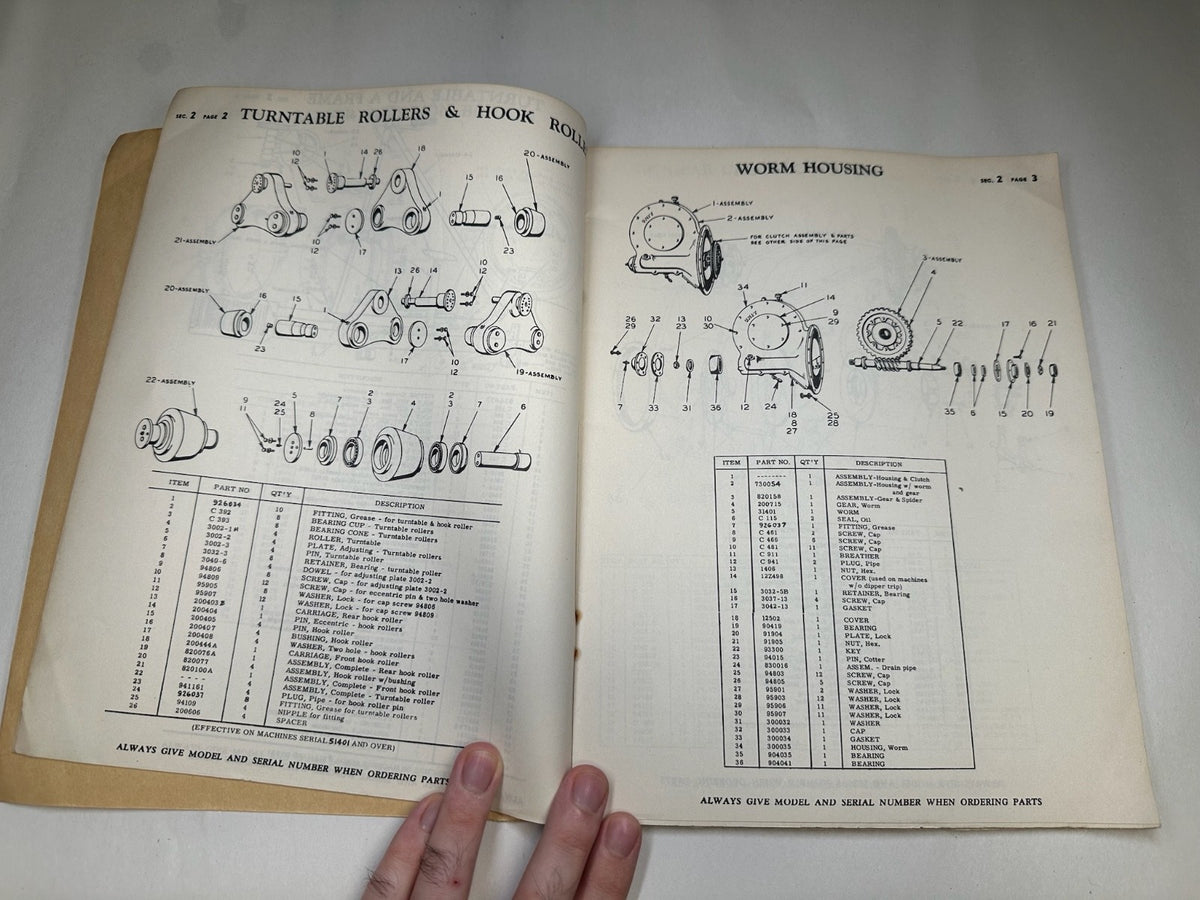 SEC. 2 PAGE 2 TURNTABLE ROLLERS & HOOK ROLL
10
12
1
14
26
18
20-ASSEMBLY
1
15
16
10
12
17
23
21-ASSEMBLY
20-ASSEMBLY
16
15
1
13
26
14
10
12
23
17
10
12
19-ASSEMBLY
22-ASSEMBLY
9
11
24
25
5
8
7
2
3
4
2
3
7
6
ITEM PART NO QT'Y DESCRIPTION
1 926034 10 FITTING, Grease - for turntable & hook roller
2 C 392 8 BEARING CUP - Turntable rollers
3 C 393 8 BEARING CONE - Turntable rollers
4 3002-1 4 ROLLER, Turntable
5 3002-2 4 PLATE, Adjusting - Turntable rollers
6 3002-3 4 PIN, Turntable roller
7 3032-3 8 RETAINER, Bearing - turntable roller
8 3040-6 4 DOWEL - for adjusting plate 3002-2
9 94806 8 SCREW, Cap - for adjusting plate 3002-2
10 94809 12 SCREW, Cap - for eccentric pin & two hole washer
11 95905 8 WASHER, Lock - for cap screw 94806
12 95907 12 WASHER, Lock - for cap screw 94809
13 200403B 1 CARRIAGE, Rear hook roller
14 200404 4 PIN, Eccentric - hook rollers
15 200405 4 PIN, Hook roller
16 200407 4 BUSHING, Hook roller
17 200408 4 WASHER, Two hole - hook rollers
18 200444A 1 CARRIAGE, Front hook roller
19 820076A 1 ASSEMBLY, Complete - Rear hook roller
20 820077 4 ASSEMBLY, Hook roller w/bushing
21 820100A 1 ASSEMBLY, Complete - Front hook roller
22 - - - - 4 ASSEMBLY, Complete - Turntable roller
23 941161 4 PLUG, Pipe - for hook roller pin
24 926037 8 FITTING, Grease for turntable rollers
25 94109 4 NIPPLE for fitting
26 200606 4 SPACER
(EFFECTIVE ON MACHINES SERIAL 51401 AND OVER)
ALWAYS GIVE MODEL AND SERIAL NUMBER WHEN ORDERING PARTS
WORM HOUSING
SEC. 2 PAGE 3
1-ASSEMBLY
2-ASSEMBLY
FOR CLUTCH ASSEMBLY & PARTS
SEE OTHER SIDE OF THIS PAGE
3-ASSEMBLY
4
34
11
14
9
29
10
30
26
29
32
13
23
5
22
17
16
21
7
33
31
36
12
24
18
8
27
25
28
35
6
15
20
19
ITEM PART NO. QT'Y DESCRIPTION
1 -------- 1 ASSEMBLY-Housing & Clutch
2 730054 1 ASSEMBLY-Housing w/ worm
and gear
3 820158 1 ASSEMBLY-Gear & Spider
4 200715 1 GEAR, Worm
5 31401 1 WORM
6 C 115 2 SEAL, Oil
7 926037 1 FITTING, Grease
8 C 461 2 SCREW, Cap
9 C 466 6 SCREW, Cap
10 C 481 11 SCREW, Cap
11 C 911 1 BREATHER
12 C 941 2 PLUG, Pipe
13 1406 1 NUT, Hex.
14 12Z498 1 COVER (used on machines
w/o dipper trip)
15 3032-5B 1 RETAINER, Bearing
16 3037-13 4 SCREW, Cap
17 3042-13 1 GASKET
18 12502 1 COVER
19 90419 1 BEARING
20 91904 1 PLATE, Lock
21 91905 1 NUT, Hex.
22 93300 1 KEY
23 94015 1 PIN, Cotter
24 830016 1 ASSEM. - Drain pipe
25 94803 12 SCREW, Cap
26 94805 5 SCREW, Cap
27 95901 2 WASHER, Lock
28 95903 12 WASHER, Lock
29 95906 11 WASHER, Lock
30 95907 11 WASHER, Lock
31 300032 1 WASHER
32 300033 1 CAP
33 300034 1 GASKET
34 300035 1 HOUSING, Worm
35 904035 1 BEARING
36 904041 1 BEARING
ALWAYS GIVE MODEL AND SERIAL NUMBER WHEN ORDERING PARTS